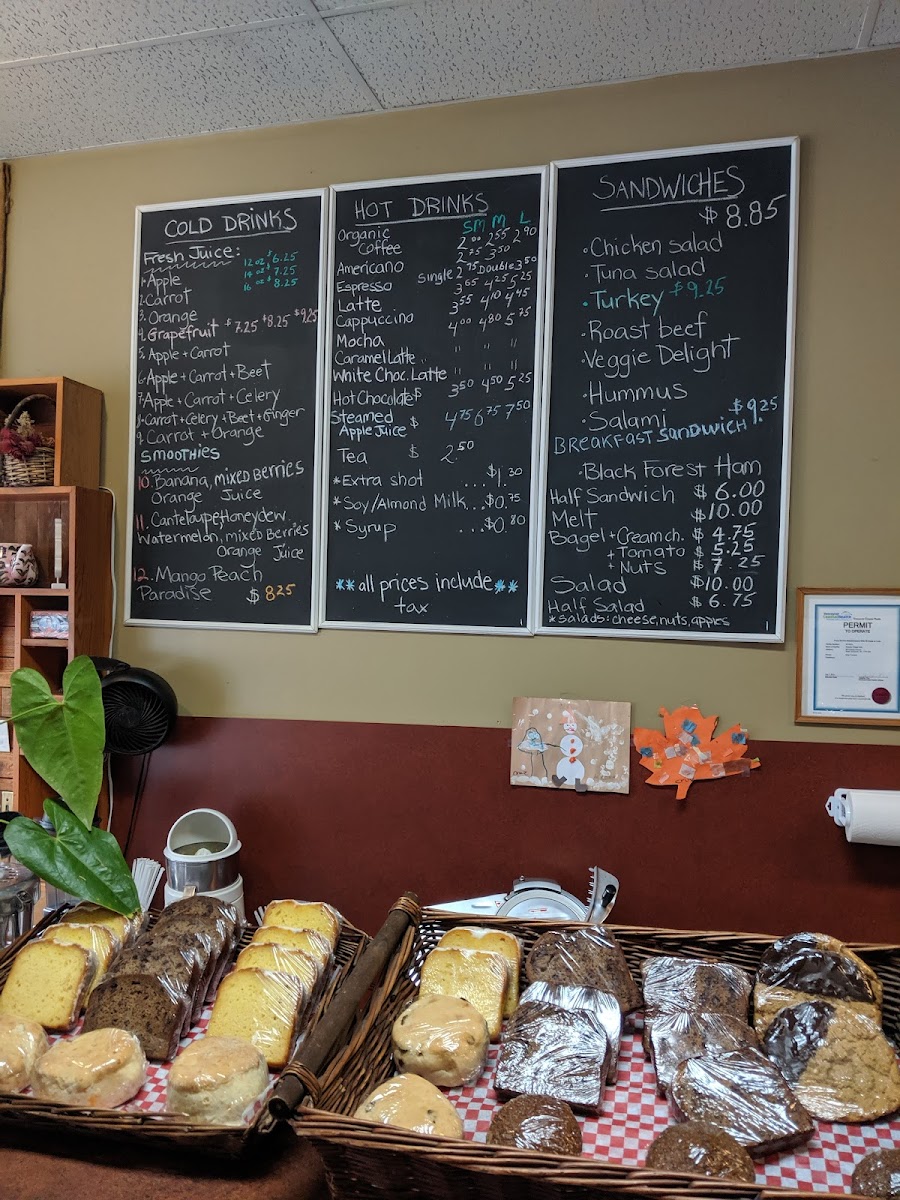 COLD DRINKS
Fresh Juice:
12 oz $6.25
14 oz $7.25
16 oz $8.25
1. Apple
2. Carrot
3. Orange
4. Grapefruit $7.25 $8.25 $9.25
5. Apple + Carrot
6. Apple + Carrot + Beet
7. Apple + Carrot + Celery
8. Carrot + Celery + Beet + Ginger
9. Carrot + Orange
SMOOTHIES
10. Banana, mixed Berries
Orange Juice
11. Canteloupe, Honeydew,
Watermelon, mixed Berries
Orange Juice
12. Mango Peach
Paradise $8.25
HOT DRINKS
SM M L
Organic
Coffee 2.00 2.55 2.90
Americano 2.75 3.50
Espresso Single 2.75 Double 3.50
Latte 3.65 4.25 5.25
Cappuccino 3.55 4.10 4.45
Mocha 4.00 4.80 5.75
Caramel Latte " " "
White Choc. Latte " " "
Hot Chocolate $ 3.50 4.50 5.25
Steamed
Apple Juice $ 4.75 6.75 7.50
Tea $ 2.50
*Extra shot ...$1.30
*Soy/Almond Milk...$0.75
*Syrup ...$0.80
**all prices include**
tax
SANDWICHES
$8.85
·Chicken salad
·Tuna salad
·Turkey $9.25
·Roast beef
·Veggie Delight
·Hummus
·Salami
BREAKFAST SANDWICH $9.25
·Black Forest Ham
Half Sandwich $6.00
Melt $10.00
Bagel + Cream ch. $4.75
+ Tomato $5.25
+ Nuts $7.25
Salad $10.00
Half Salad $6.75
*salads: cheese, nuts, apples
PERMIT
TO OPERATE